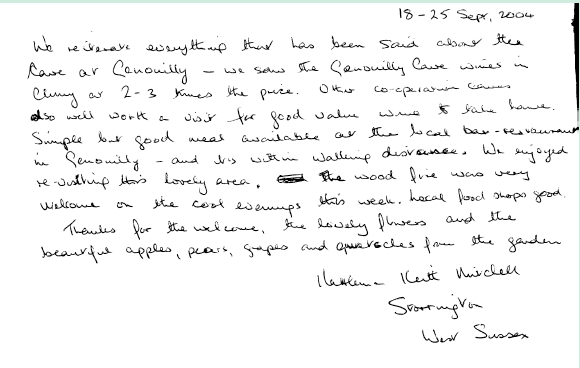 18-25 Sept, 2004
We reiterate everything that has been said about the
Cave at Genouilly - we saw the Genouilly Cave wines in
Cluny at 2-3 times the price. Other co-operative caves
also well worth a visit for good value wine to take home.
Simple but good meal available at the local bar-restaurant
in Genouilly - and its within walking distance. We enjoyed
re-visiting this lovely area. The wood fire was very
welcome on the cool evenings this week. Local food shops good.
Thanks for the welcome, the lovely flowers and the
beautiful apples, pears, grapes and quetsches from the garden
Keith Mitchell
Storrington
West Sussex